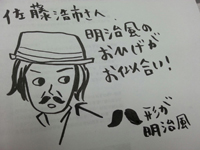 佐藤浩市さん
明治風の
おひげが
お似合い!
形が
明治風